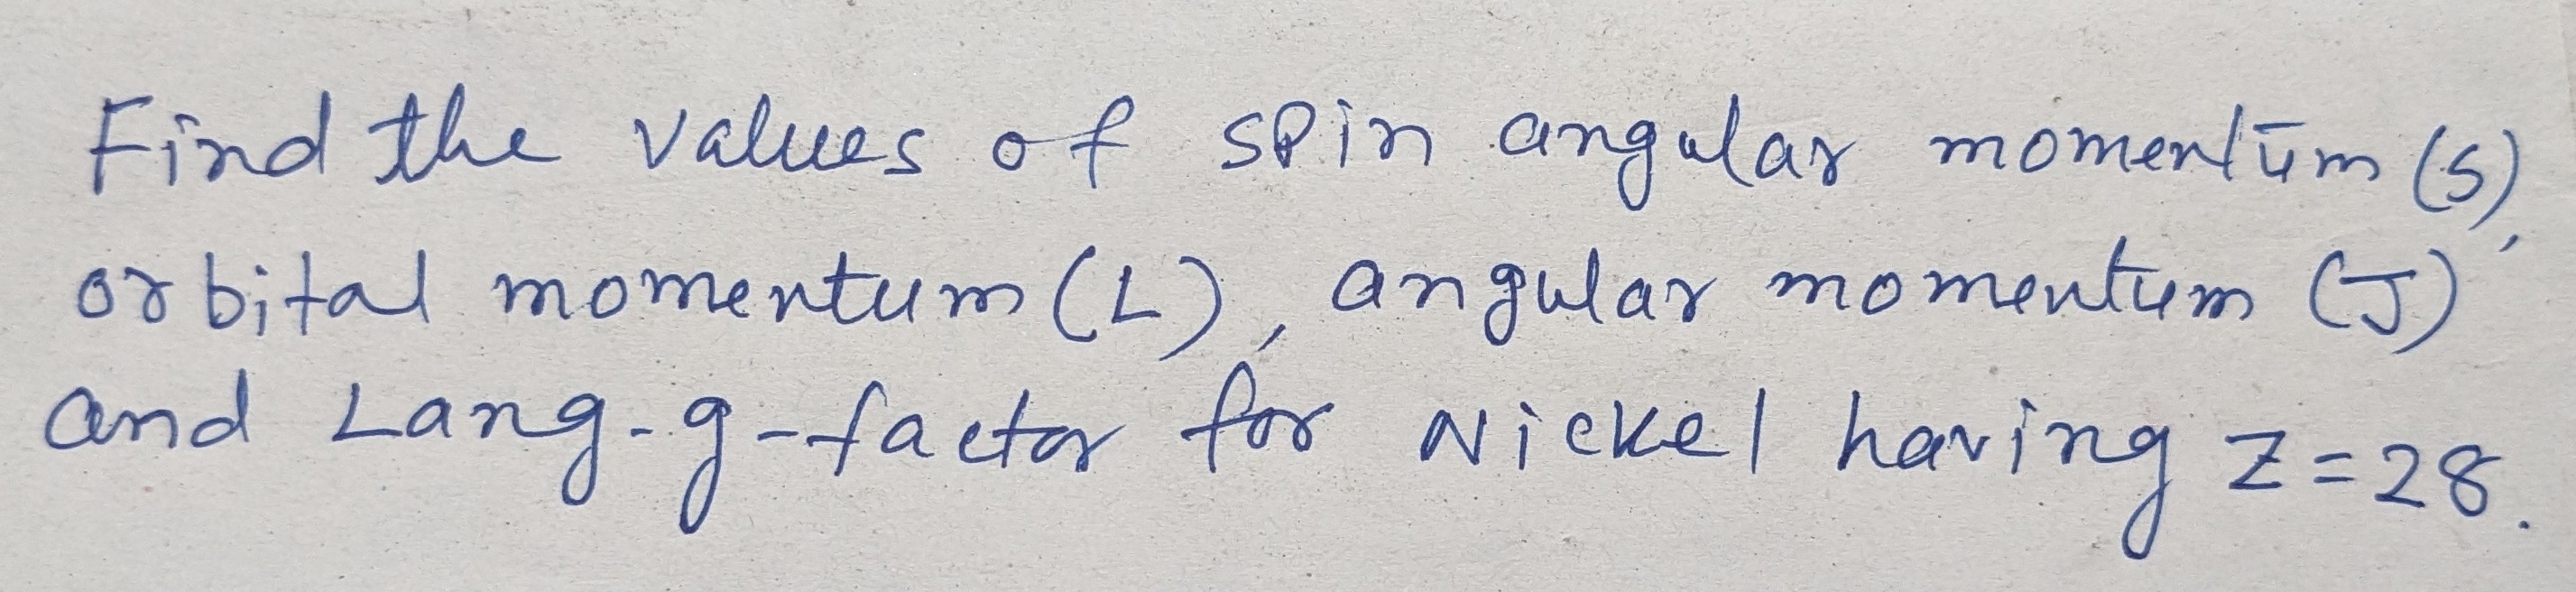 Find the values of spin angular momentum (S),
orbital momentum (L), angular momentum (J)
and Lang-g-factor for Nickel having Z=28.